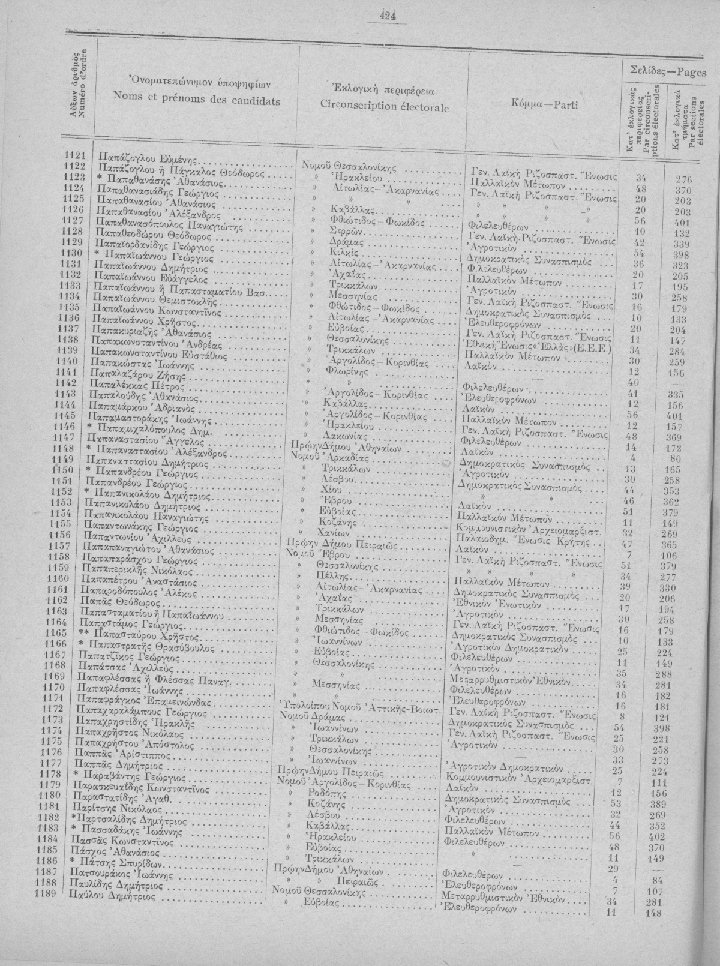 424
Αὔξων ἀριθμὸς
Numéro d'ordre
Ὀνοματεπώνυμον ὑποψηφίων
Noms et prénoms des candidats
Ἐκλογικὴ περιφέρεια
Circonscription électorale
Κόμμα—Parti
Σελίδες—Pages
Κατ' ἐκλογικὰς περιφερείας
Par circonscriptions électorales
Κατ' ἐκλογικὰ τμήματα
Par sections électorales
1121 Παπάζογλου Εὐμένης Νομοῦ Θεσσαλονίκης Γεν. Λαϊκὴ Ριζοσπαστ. Ἕνωσις 34 276
1122 Παπάζογλου ἢ Πάγκαλος Θεόδωρος » Ἡρακλείου Παλλαϊκὸν Μέτωπον 48 370
1123 * Παπαθανάσης Ἀθανάσιος » Αἰτωλίας–Ἀκαρνανίας Γεν. Λαϊκὴ Ριζοσπαστ. Ἕνωσις 20 203
1124 Παπαθανασιάδης Γεώργιος » » Ἀγροτικὸν 20 203
1125 Παπαθανασίου Ἀθανάσιος » Καβάλλας » » 56 401
1126 Παπαθανασίου Ἀλέξανδρος » Φθιώτιδος–Φωκίδος » 10 132
1127 Παπαθανασόπουλος Παναγιώτης » Σερρῶν Φιλελευθέρων 42 339
1128 Παπαθεοδώρου Θεόδωρος » Δράμας Γεν. Λαϊκὴ-Ριζοσπαστ. Ἕνωσις 54 398
1129 Παπαϊορδανίδης Γεώργιος » Κιλκὶς Δημοκρατικὸς Συνασπισμὸς 36 323
1130 * Παπαϊωάννου Γεώργιος » Αἰτωλίας–Ἀκαρνανίας Φιλελευθέρων 20 205
1131 Παπαϊωάννου Δημήτριος » Ἀχαΐας Παλλαϊκὸν Μέτωπον 17 195
1132 Παπαϊωάννου Εὐάγγελος » Τρικκάλων Ἀγροτικὸν 30 258
1133 Παπαϊωάννου ἢ Παπασταματίου Βασ. » Μεσσηνίας Γεν. Λαϊκὴ Ριζοσπαστ. Ἕνωσις 16 179
1134 Παπαϊωάννου Θεμιστοκλῆς » Φθιώτιδος–Φωκίδος Δημοκρατικὸς Συνασπισμὸς 10 133
1135 Παπαϊωάννου Κωνσταντῖνος » Αἰτωλίας–Ἀκαρνανίας Ἐλευθεροφρόνων 20 204
1136 Παπαϊωάννου Χρῆστος » Εὐβοίας Γεν. Λαϊκὴ Ριζοσπαστ. Ἕνωσις 11 147
1137 Παπακυριαζῆς Ἀθανάσιος » Θεσσαλονίκης Ἐθνικὴ Ἕνωσις «Ἑλλὰς» (Ε.Ε.Ε) 34 284
1138 Παπακωνσταντίνου Ἀνδρέας » Τρικκάλων Παλλαϊκὸν Μέτωπον 30 259
1139 Παπακωνσταντίνου Εὐστάθιος » Ἀργολίδος–Κορινθίας Λαϊκὸν 12 156
1140 Παπακώστας Ἰωάννης » Φλωρίνης
1141 Παπαλαζάρου Ζήσης » » Φιλελευθέρων
1142 Παπαλέκκας Πέτρος » Ἀργολίδος–Κορινθίας Ἐλευθεροφρόνων 12 156
1143 Παπαλούδης Ἀθανάσιος » Καβάλλας Λαϊκὸν 56 401
1144 Παπαμάρκου Ἀδριανὸς » Ἀργολίδος–Κορινθίας Παλλαϊκὸν Μέτωπον 12 157
1145 Παπαμαστοράκης Ἰωάννης » Ἡρακλείου Γεν. Λαϊκὴ Ριζοσπαστ. Ἕνωσις 48 369
1146 * Παπαμιχαλόπουλος Δημ. » Λακωνίας Φιλελευθέρων 14 172
1147 Παπαναστασίου Ἄγγελος Πρώην Δήμου Ἀθηναίων Λαϊκὸν 4 80
1148 * Παπαναστασίου Ἀλέξανδρος Νομοῦ Ἀρκαδίας Δημοκρατικὸς Συνασπισμὸς 13 165
1149 Παπαναστασίου Δημήτριος » Τρικκάλων Ἀγροτικὸν 30 258
1150 * Παπανδρέου Γεώργιος » Λέσβου Δημοκρατικὸς Συνασπισμὸς 44 353
1151 Παπανδρέου Γεώργιος » Χίου » » 46 362
1152 * Παπανικολάου Δημήτριος » Ἕβρου Λαϊκὸν 51 379
1153 Παπανικολάου Δημήτριος » Εὐβοίας Παλλαϊκὸν Μέτωπον 11 149
1154 Παπανικολάου Παναγιώτης » Κοζάνης Κομμουνιστικὸν Ἀρχειομαρξιστ. 32 269
1155 Παπαντωνάκης Γεώργιος » Χανίων Παλαιοδημ. Ἕνωσις Κρήτης 47 365
1156 Παπαντωνίου Ἀχιλλεὺς Πρώην Δήμου Πειραιῶς Λαϊκὸν 7 106
1157 Παπαπαναγιώτου Ἀθανάσιος Νομοῦ Ἕβρου Γεν. Λαϊκὴ Ριζοσπαστ. Ἕνωσις 51 379
1158 Παπαπαράσχου Γεώργιος » Θεσσαλονίκης » » 34 277
1159 Παπαπερικλῆς Νικόλαος » Πέλλης Παλλαϊκὸν Μέτωπον 39 330
1160 Παπαπέτρου Ἀναστάσιος » Αἰτωλίας–Ἀκαρνανίας Δημοκρατικὸς Συνασπισμὸς 20 206
1161 Παπαροδόπουλος Ἀλέκος » Ἀχαΐας Ἐθνικὸν Ἑνωτικὸν 17 194
1162 Παπᾶς Θεόδωρος » Τρικκάλων Ἀγροτικὸν 30 258
1163 Παπασταματίου ἢ Παπαϊωάννου » Μεσσηνίας Γεν. Λαϊκὴ Ριζοσπαστ. Ἕνωσις 16 179
1164 Παπαστάμος Γεώργιος » Φθιώτιδος–Φωκίδος Δημοκρατικὸς Συνασπισμὸς 10 133
1165 ** Παπασταύρου Χρῆστος » Ἰωαννίνων Ἀγροτικὸν Δημοκρατικὸν 25 224
1166 * Παπαστρατῆς Θρασύβουλος » Εὐβοίας Φιλελευθέρων 11 149
1167 Παπατζίκος Γεώργιος » Θεσσαλονίκης Ἀγροτικὸν 35 288
1168 Παπάτσας Ἀχιλλεὺς » » Μεταρρυθμιστικὸν Ἐθνικὸν 34 281
1169 Παπαφλέσσας ἢ Φλέσσας Παναγ. » Μεσσηνίας Φιλελευθέρων 16 182
1170 Παπαφλέσσας Ἰωάννης » » Ἐλευθεροφρόνων 16 181
1171 Παπαφράγκος Ἐπαμεινώνδας Ὑπολοίπου Νομοῦ Ἀττικῆς–Βοιωτ. Γεν. Λαϊκὴ Ριζοσπαστ. Ἕνωσις 8 121
1172 Παπαχαραλάμπους Γεώργιος Νομοῦ Δράμας Δημοκρατικὸς Συνασπισμὸς 54 398
1173 Παπαχρηστίδης Ἡρακλῆς » Ἰωαννίνων Γεν. Λαϊκὴ Ριζοσπαστ. Ἕνωσις 25 221
1174 Παπαχρῆστος Νικόλαος » Τρικκάλων Ἀγροτικὸν 30 258
1175 Παπαχρήστου Ἀπόστολος » Θεσσαλονίκης » 33 273
1176 Παππᾶς Ἀρίστιππος » Ἰωαννίνων Ἀγροτικὸν Δημοκρατικὸν 25 224
1177 Παππᾶς Δημήτριος Πρώην Δήμου Πειραιῶς Κομμουνιστικὸν Ἀρχειομαρξιστ 7 111
1178 * Παραβάντης Γεώργιος Νομοῦ Ἀργολίδος–Κορινθίας Λαϊκὸν 12 156
1179 Παρασκευαΐδης Κωνσταντῖνος » Ροδόπης Δημοκρατικὸς Συνασπισμὸς 53 389
1180 Παραστατίδης Ἀγαθ. » Κοζάνης Ἀγροτικὸν 32 269
1181 Παρίτσης Νικόλαος » Λέσβου Φιλελευθέρων 44 352
1182 *Παρτσαλίδης Δημήτριος » Καβάλλας Παλλαϊκὸν Μέτωπον 56 402
1183 * Πασσαδάκης Ἰωάννης » Ἡρακλείου Φιλελευθέρων 48 370
1184 Πασσᾶς Κωνσταντῖνος » Εὐβοίας » 11 149
1185 Πάσχος Ἀθανάσιος » Τρικκάλων — 29 —
1186 * Πάτσης Σπυρίδων Πρώην Δήμου Ἀθηναίων Φιλελευθέρων 4 84
1187 Πατσουράκος Ἰωάννης » » Πειραιῶς Ἐλευθεροφρόνων 7 107
1188 Παυλίδης Δημήτριος Νομοῦ Θεσσαλονίκης Μεταρρυθμιστικὸν Ἐθνικὸν 34 281
1189 Παύλου Δημήτριος » Εὐβοίας Ἐλευθεροφρόνων 11 148